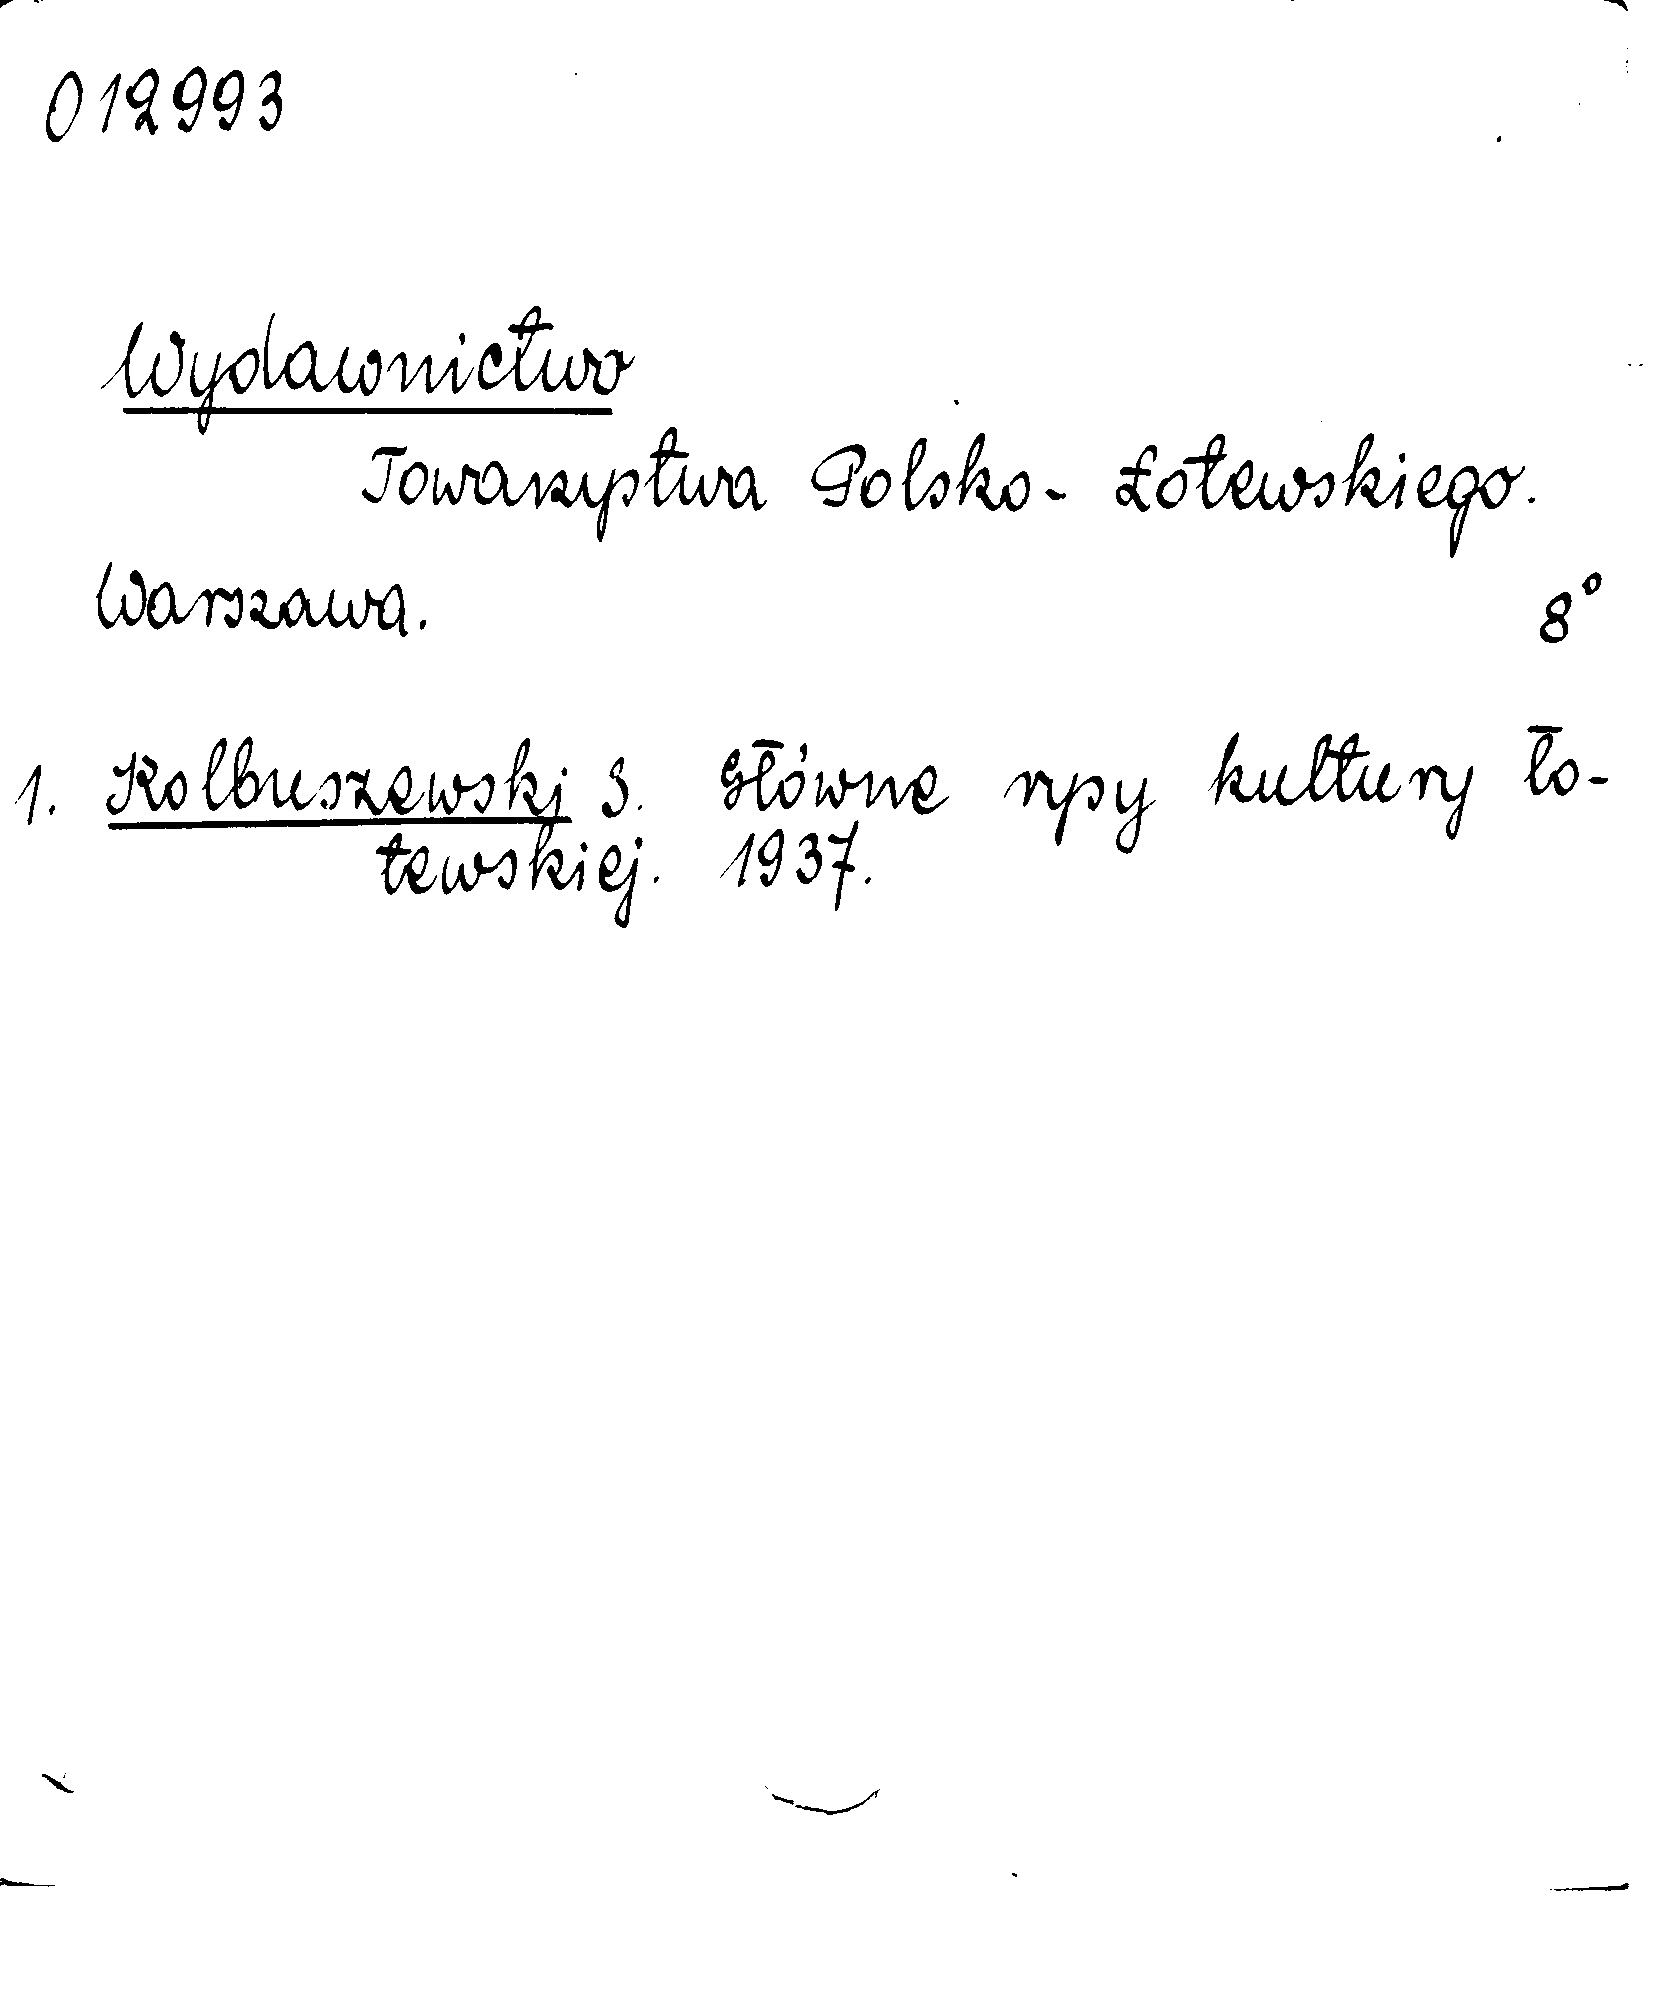 012993
Wydawnictwo
Towarzystwa Polsko-Łotewskiego.
Warszawa. 8°
1. Kolbuszewski S. Główne rysy kultury ło-
tewskiej. 1937.